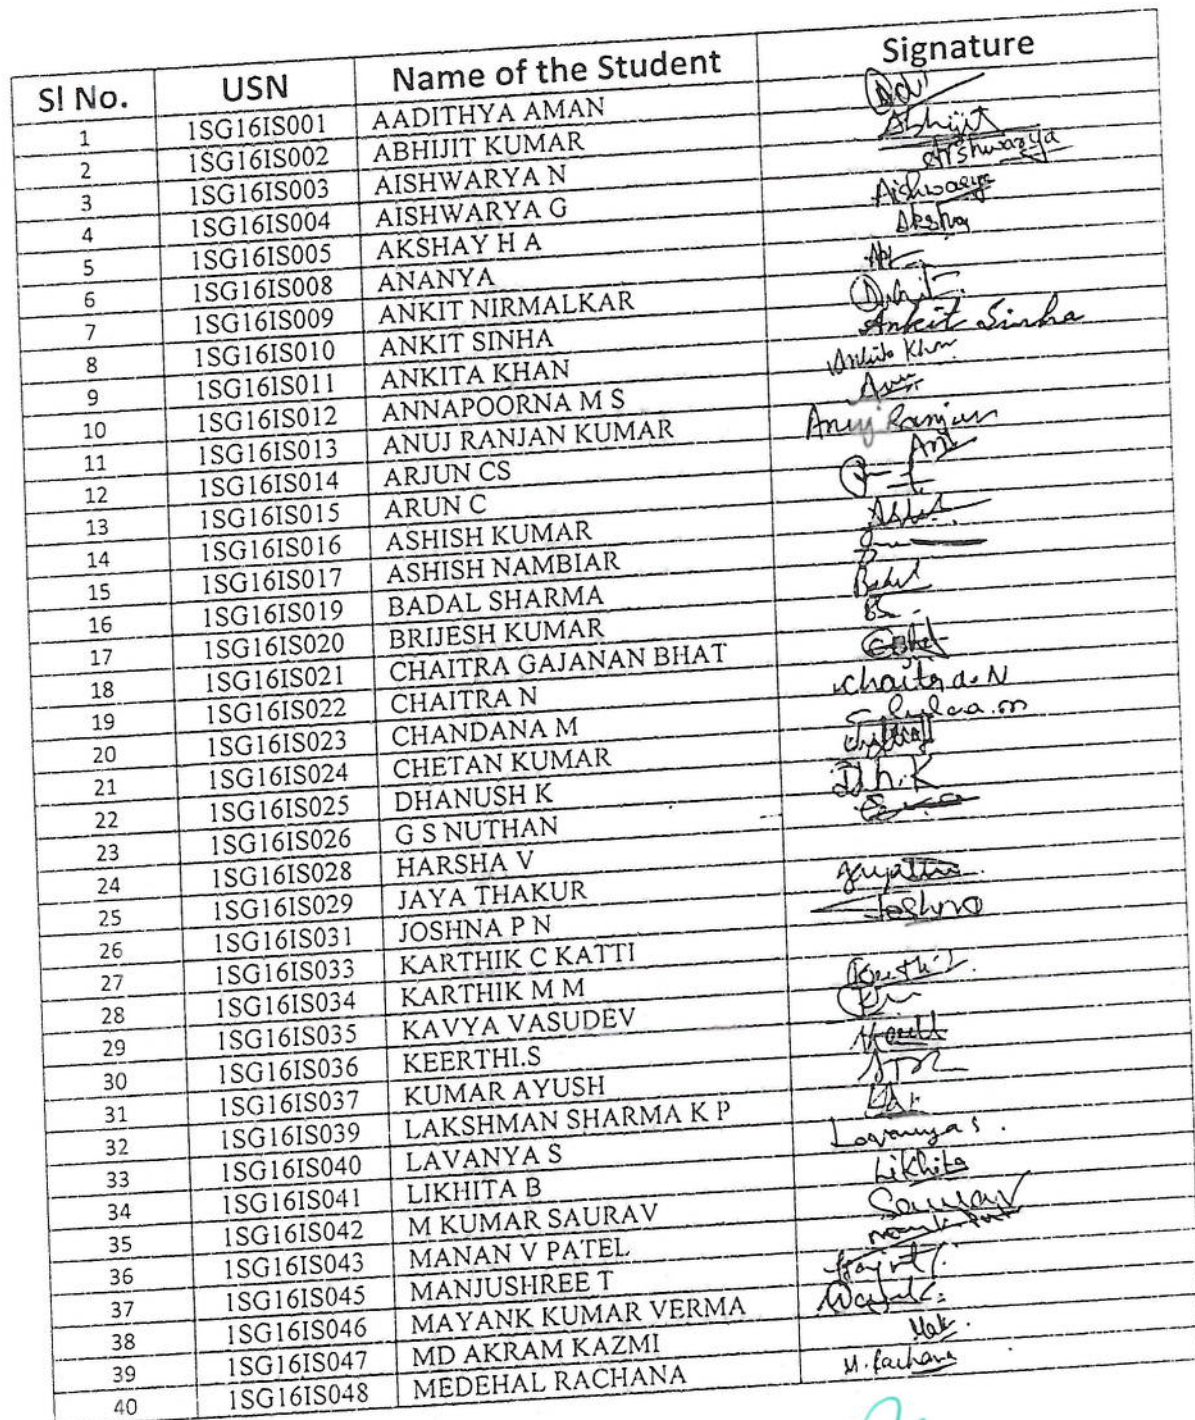 Sl No. USN Name of the Student Signature
1 1SG16IS001 AADITHYA AMAN
2 1SG16IS002 ABHIJIT KUMAR Abhijit
3 1SG16IS003 AISHWARYA N Aishwarya
4 1SG16IS004 AISHWARYA G Aishwarya
5 1SG16IS005 AKSHAY H A Akshay
6 1SG16IS008 ANANYA
7 1SG16IS009 ANKIT NIRMALKAR
8 1SG16IS010 ANKIT SINHA Ankit Sinha
9 1SG16IS011 ANKITA KHAN Ankita Khan
10 1SG16IS012 ANNAPOORNA M S
11 1SG16IS013 ANUJ RANJAN KUMAR Anuj Ranjan
12 1SG16IS014 ARJUN CS
13 1SG16IS015 ARUN C
14 1SG16IS016 ASHISH KUMAR
15 1SG16IS017 ASHISH NAMBIAR
16 1SG16IS019 BADAL SHARMA Badal
17 1SG16IS020 BRIJESH KUMAR
18 1SG16IS021 CHAITRA GAJANAN BHAT
19 1SG16IS022 CHAITRA N
20 1SG16IS023 CHANDANA M
21 1SG16IS024 CHETAN KUMAR
22 1SG16IS025 DHANUSH K
23 1SG16IS026 G S NUTHAN
24 1SG16IS028 HARSHA V
25 1SG16IS029 JAYA THAKUR
26 1SG16IS031 JOSHNA P N Joshna
27 1SG16IS033 KARTHIK C KATTI
28 1SG16IS034 KARTHIK M M
29 1SG16IS035 KAVYA VASUDEV
30 1SG16IS036 KEERTHI.S
31 1SG16IS037 KUMAR AYUSH
32 1SG16IS039 LAKSHMAN SHARMA K P
33 1SG16IS040 LAVANYA S Lavanya S.
34 1SG16IS041 LIKHITA B Likhita
35 1SG16IS042 M KUMAR SAURAV Saurav
36 1SG16IS043 MANAN V PATEL
37 1SG16IS045 MANJUSHREE T
38 1SG16IS046 MAYANK KUMAR VERMA
39 1SG16IS047 MD AKRAM KAZMI
40 1SG16IS048 MEDEHAL RACHANA M. Rachana